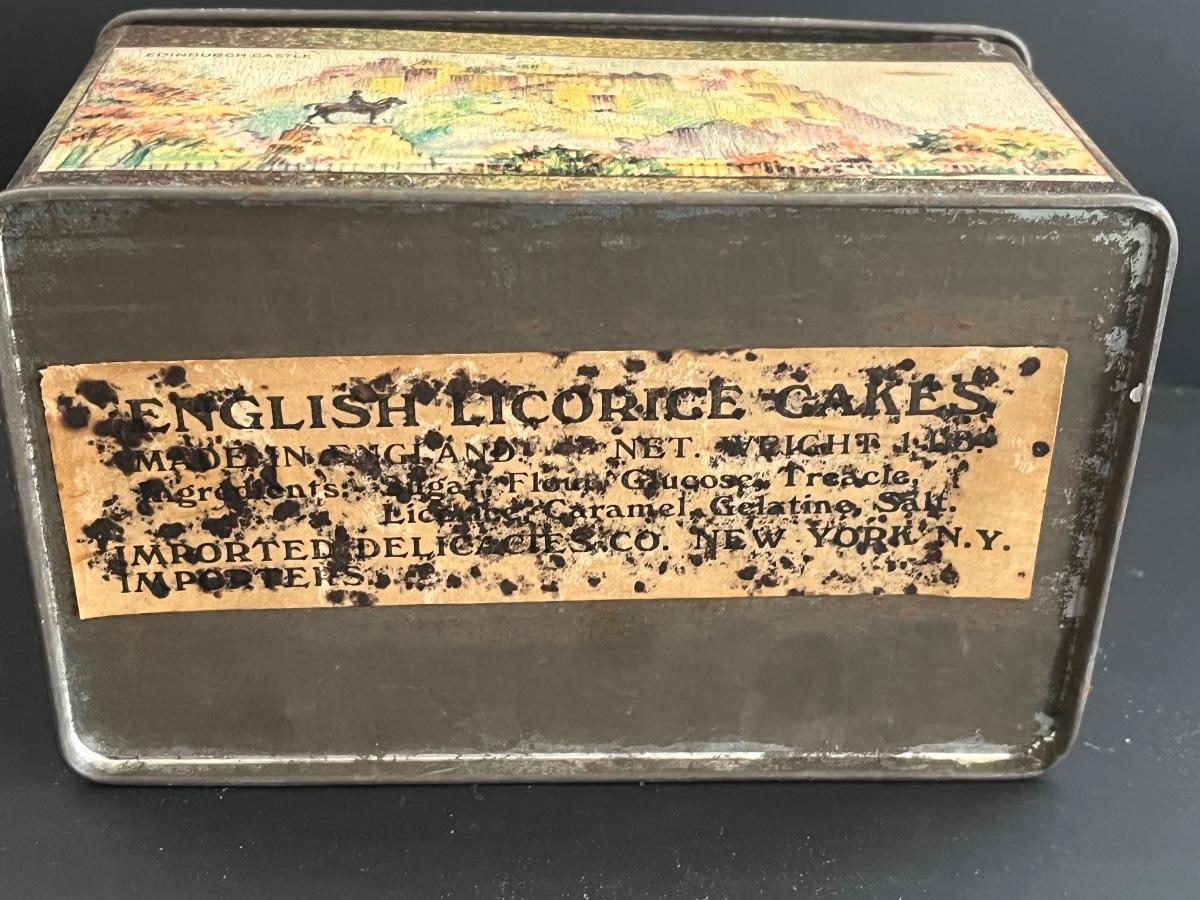 EDINBURGH CASTLE
ENGLISH LICORICE CAKES
MADE IN ENGLAND. NET. WEIGHT 1 LB.
Ingredients: Sugar, Flour, Glucose, Treacle,
Licorice, Caramel, Gelatine, Salt.
IMPORTED DELICACIES CO. NEW YORK N.Y.
IMPORTERS.